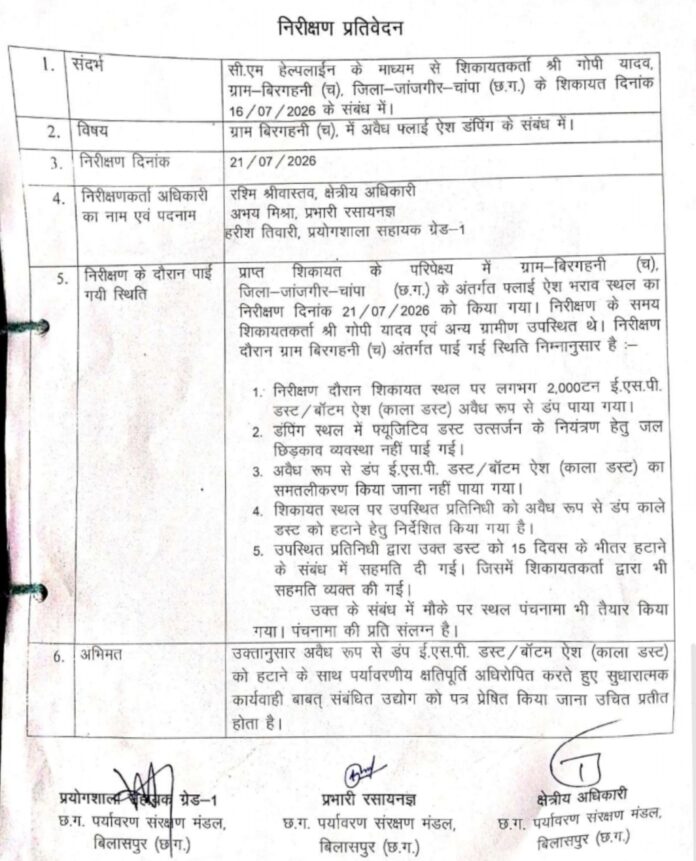 निरीक्षण प्रतिवेदन
1. संदर्भ
सी.एम हेल्पलाईन के माध्यम से शिकायतकर्ता श्री गोपी यादव,
ग्राम–बिरगहनी (च), जिला–जांजगीर–चांपा (छ.ग.) के शिकायत दिनांक
16/07/2026 के संबंध में।
2. विषय
ग्राम बिरगहनी (च), में अवैध फ्लाई ऐश डंपिंग के संबंध में।
3. निरीक्षण दिनांक
21/07/2026
4. निरीक्षणकर्ता अधिकारी
का नाम एवं पदनाम
रश्मि श्रीवास्तव, क्षेत्रीय अधिकारी
अभय मिश्रा, प्रभारी रसायनज्ञ
हरीश तिवारी, प्रयोगशाला सहायक ग्रेड–1
5. निरीक्षण के दौरान पाई
गयी स्थिति
प्राप्त शिकायत के परिपेक्ष्य में ग्राम–बिरगहनी (च),
जिला–जांजगीर–चांपा (छ.ग.) के अंतर्गत फ्लाई ऐश भराव स्थल का
निरीक्षण दिनांक 21/07/2026 को किया गया। निरीक्षण के समय
शिकायतकर्ता श्री गोपी यादव एवं अन्य ग्रामीण उपस्थित थे। निरीक्षण
दौरान ग्राम बिरगहनी (च) अंतर्गत पाई गई स्थिति निम्नानुसार है :–
1. निरीक्षण दौरान शिकायत स्थल पर लगभग 2,000टन ई.एस.पी.
डस्ट/बॉटम ऐश (काला डस्ट) अवैध रूप से डंप पाया गया।
2. डंपिंग स्थल में फ्यूजिटिव डस्ट उत्सर्जन के नियंत्रण हेतु जल
छिड़काव व्यवस्था नहीं पाई गई।
3. अवैध रूप से डंप ई.एस.पी. डस्ट/बॉटम ऐश (काला डस्ट) का
समतलीकरण किया जाना नहीं पाया गया।
4. शिकायत स्थल पर उपस्थित प्रतिनिधी को अवैध रूप से डंप काले
डस्ट को हटाने हेतु निर्देशित किया गया है।
5. उपस्थित प्रतिनिधी द्वारा उक्त डस्ट को 15 दिवस के भीतर हटाने
के संबंध में सहमति दी गई। जिसमें शिकायतकर्ता द्वारा भी
सहमति व्यक्त की गई।
उक्त के संबंध में मौके पर स्थल पंचनामा भी तैयार किया
गया। पंचनामा की प्रति संलग्न है।
6. अभिमत
उक्तानुसार अवैध रूप से डंप ई.एस.पी. डस्ट/बॉटम ऐश (काला डस्ट)
को हटाने के साथ पर्यावरणीय क्षतिपूर्ति अधिरोपित करते हुए सुधारात्मक
कार्यवाही बाबत् संबंधित उद्योग को पत्र प्रेषित किया जाना उचित प्रतीत
होता है।
प्रयोगशाला सहायक ग्रेड–1
छ.ग. पर्यावरण संरक्षण मंडल,
बिलासपुर (छ.ग.)
प्रभारी रसायनज्ञ
छ.ग. पर्यावरण संरक्षण मंडल,
बिलासपुर (छ.ग.)
क्षेत्रीय अधिकारी
छ.ग. पर्यावरण संरक्षण मंडल,
बिलासपुर (छ.ग.)